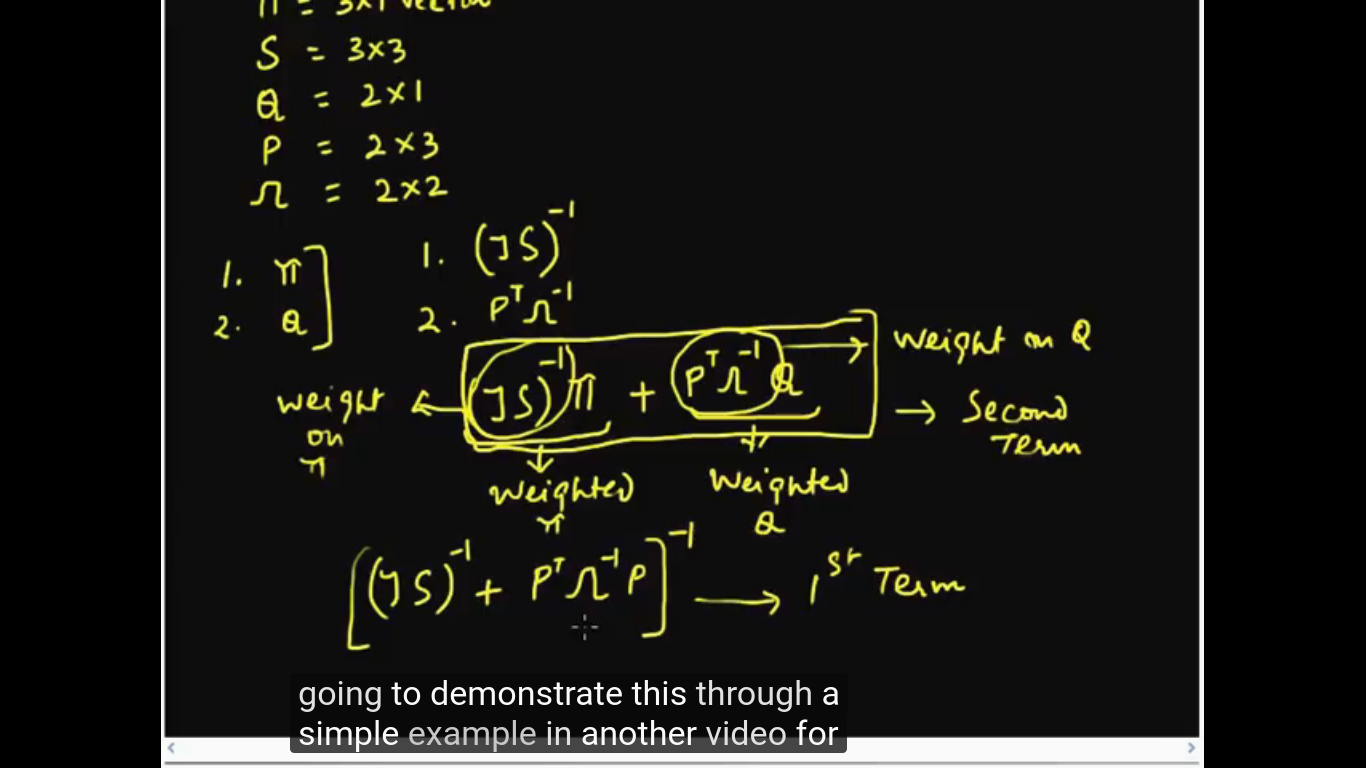 Π = 3×1 vector
S = 3×3
Q = 2×1
P = 2×3
Ω = 2×2
1. π
2. Q
1. (τS)⁻¹
2. PᵀΩ⁻¹
(τS)⁻¹Π + PᵀΩ⁻¹Q
weight on π
weight on Q
Second Term
weighted π
weighted Q
[(τS)⁻¹ + PᵀΩ⁻¹P]⁻¹ → 1st Term
going to demonstrate this through a
simple example in another video for